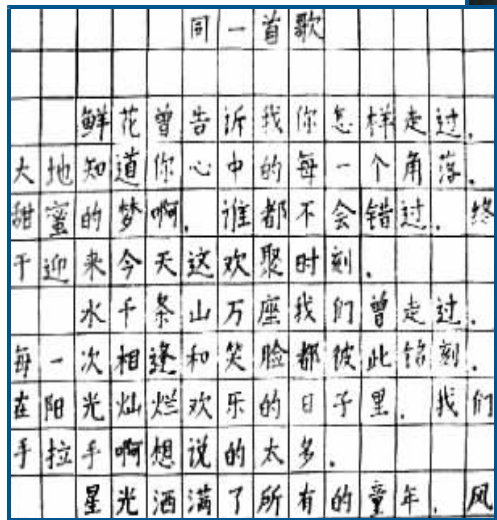 同一首歌
鲜花曾告诉我你怎样走过.
大地知道你心中的每一个角落.
甜蜜的梦啊.谁都不会错过.终
于迎来今天这欢聚时刻.
水千条山万座我们曾走过.
每一次相逢和笑脸都彼此铭刻.
在阳光灿烂欢乐的日子里.我们
手拉手啊想说的太多.
星光洒满了所有的童年.风